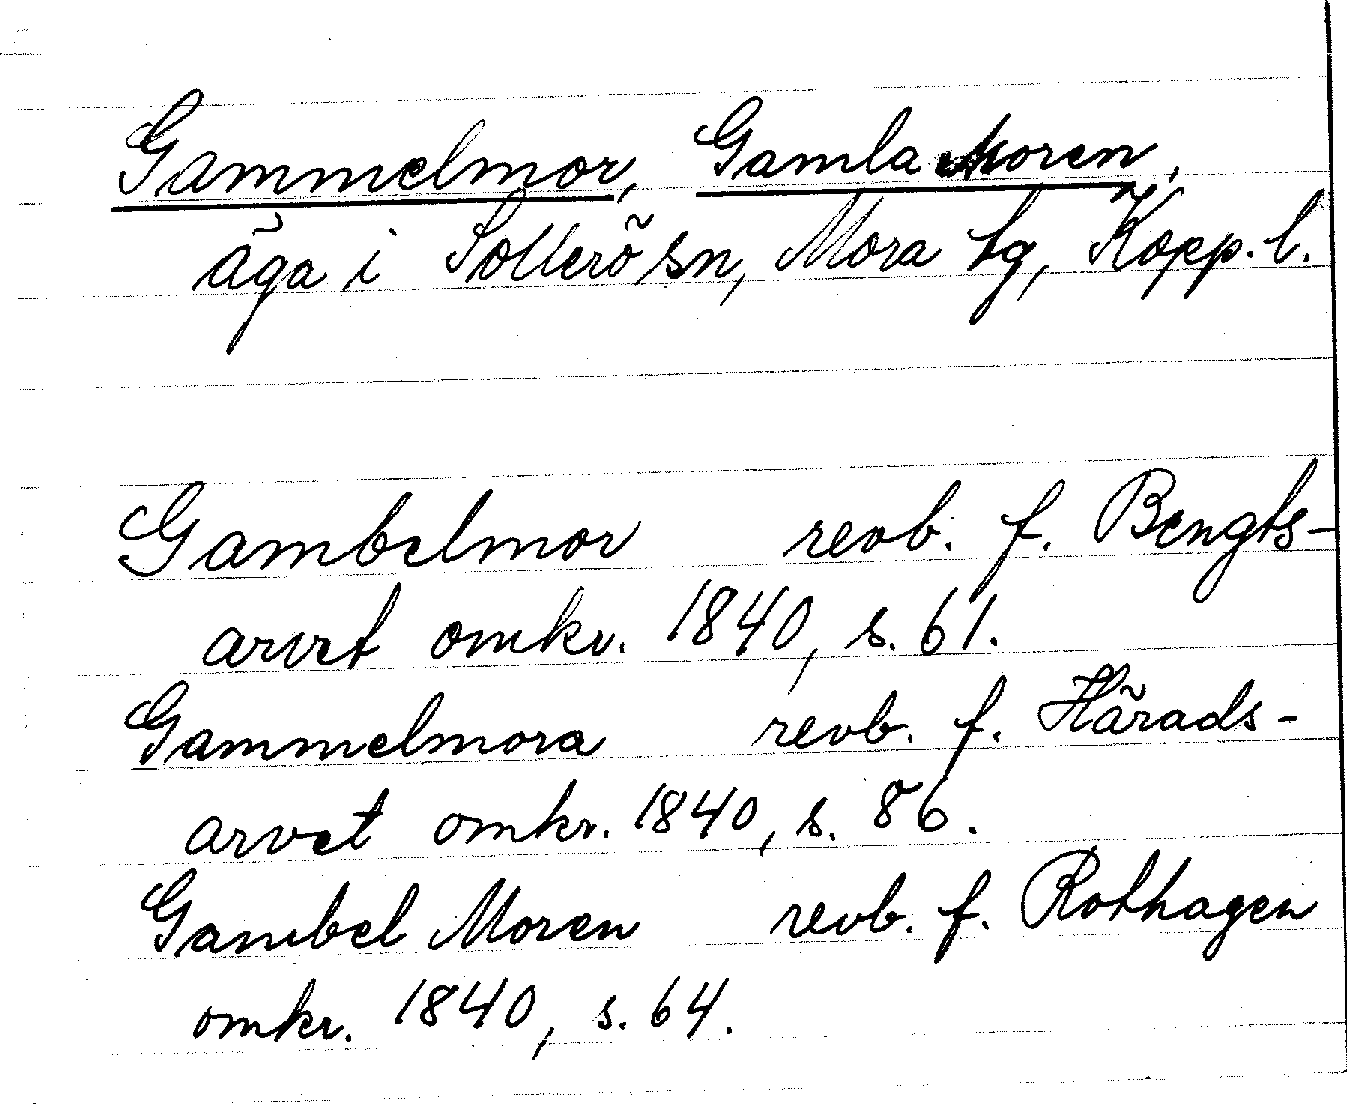 Gammelmor, Gamla Moren,
äga i Sollerö sn, Mora tg, Kopp. l.
Gambelmor revb. f. Bengts-
arvet omkr. 1840, s. 61.
Gammelmora revb. f. Härads-
arvet omkr. 1840, s. 86.
Gambel Moren revb. f. Rothagen
omkr. 1840, s. 64.